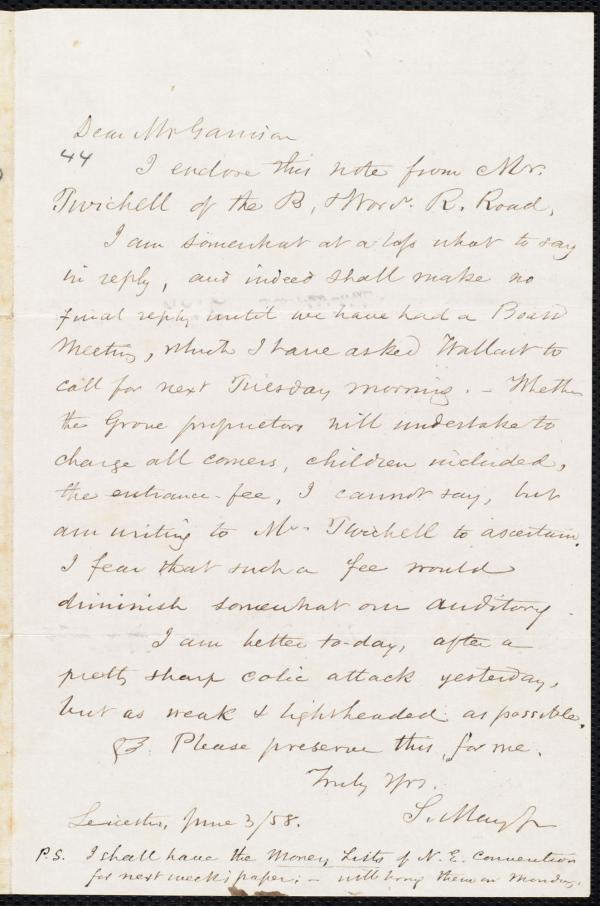 Dear Mr Garrison
44
I enclose this note from Mr.
Twichell of the B, & Worr. R. Road,
I am somewhat at a loss what to say
in reply, and indeed shall make no
final reply until we have had a Board
Meeting, which I have asked Wallcut to
call for next Tuesday morning. – Whether
the Grove proprietors will undertake to
charge all comers, children included,
the entrance-fee, I cannot say, but
am writing to Mr. Twichell to ascertain.
I fear that such a fee would
diminish somewhat our auditory.
I am better to-day, after a
pretty sharp colic attack yesterday,
but as weak & lightheaded as possible.
Please preserve this, for me.
Truly Yrs.
S. May Jr
Leicester, June 3/58.
P.S. I shall have the Money Lists of N. E. Convention
for next week's paper; – will bring them on Monday.